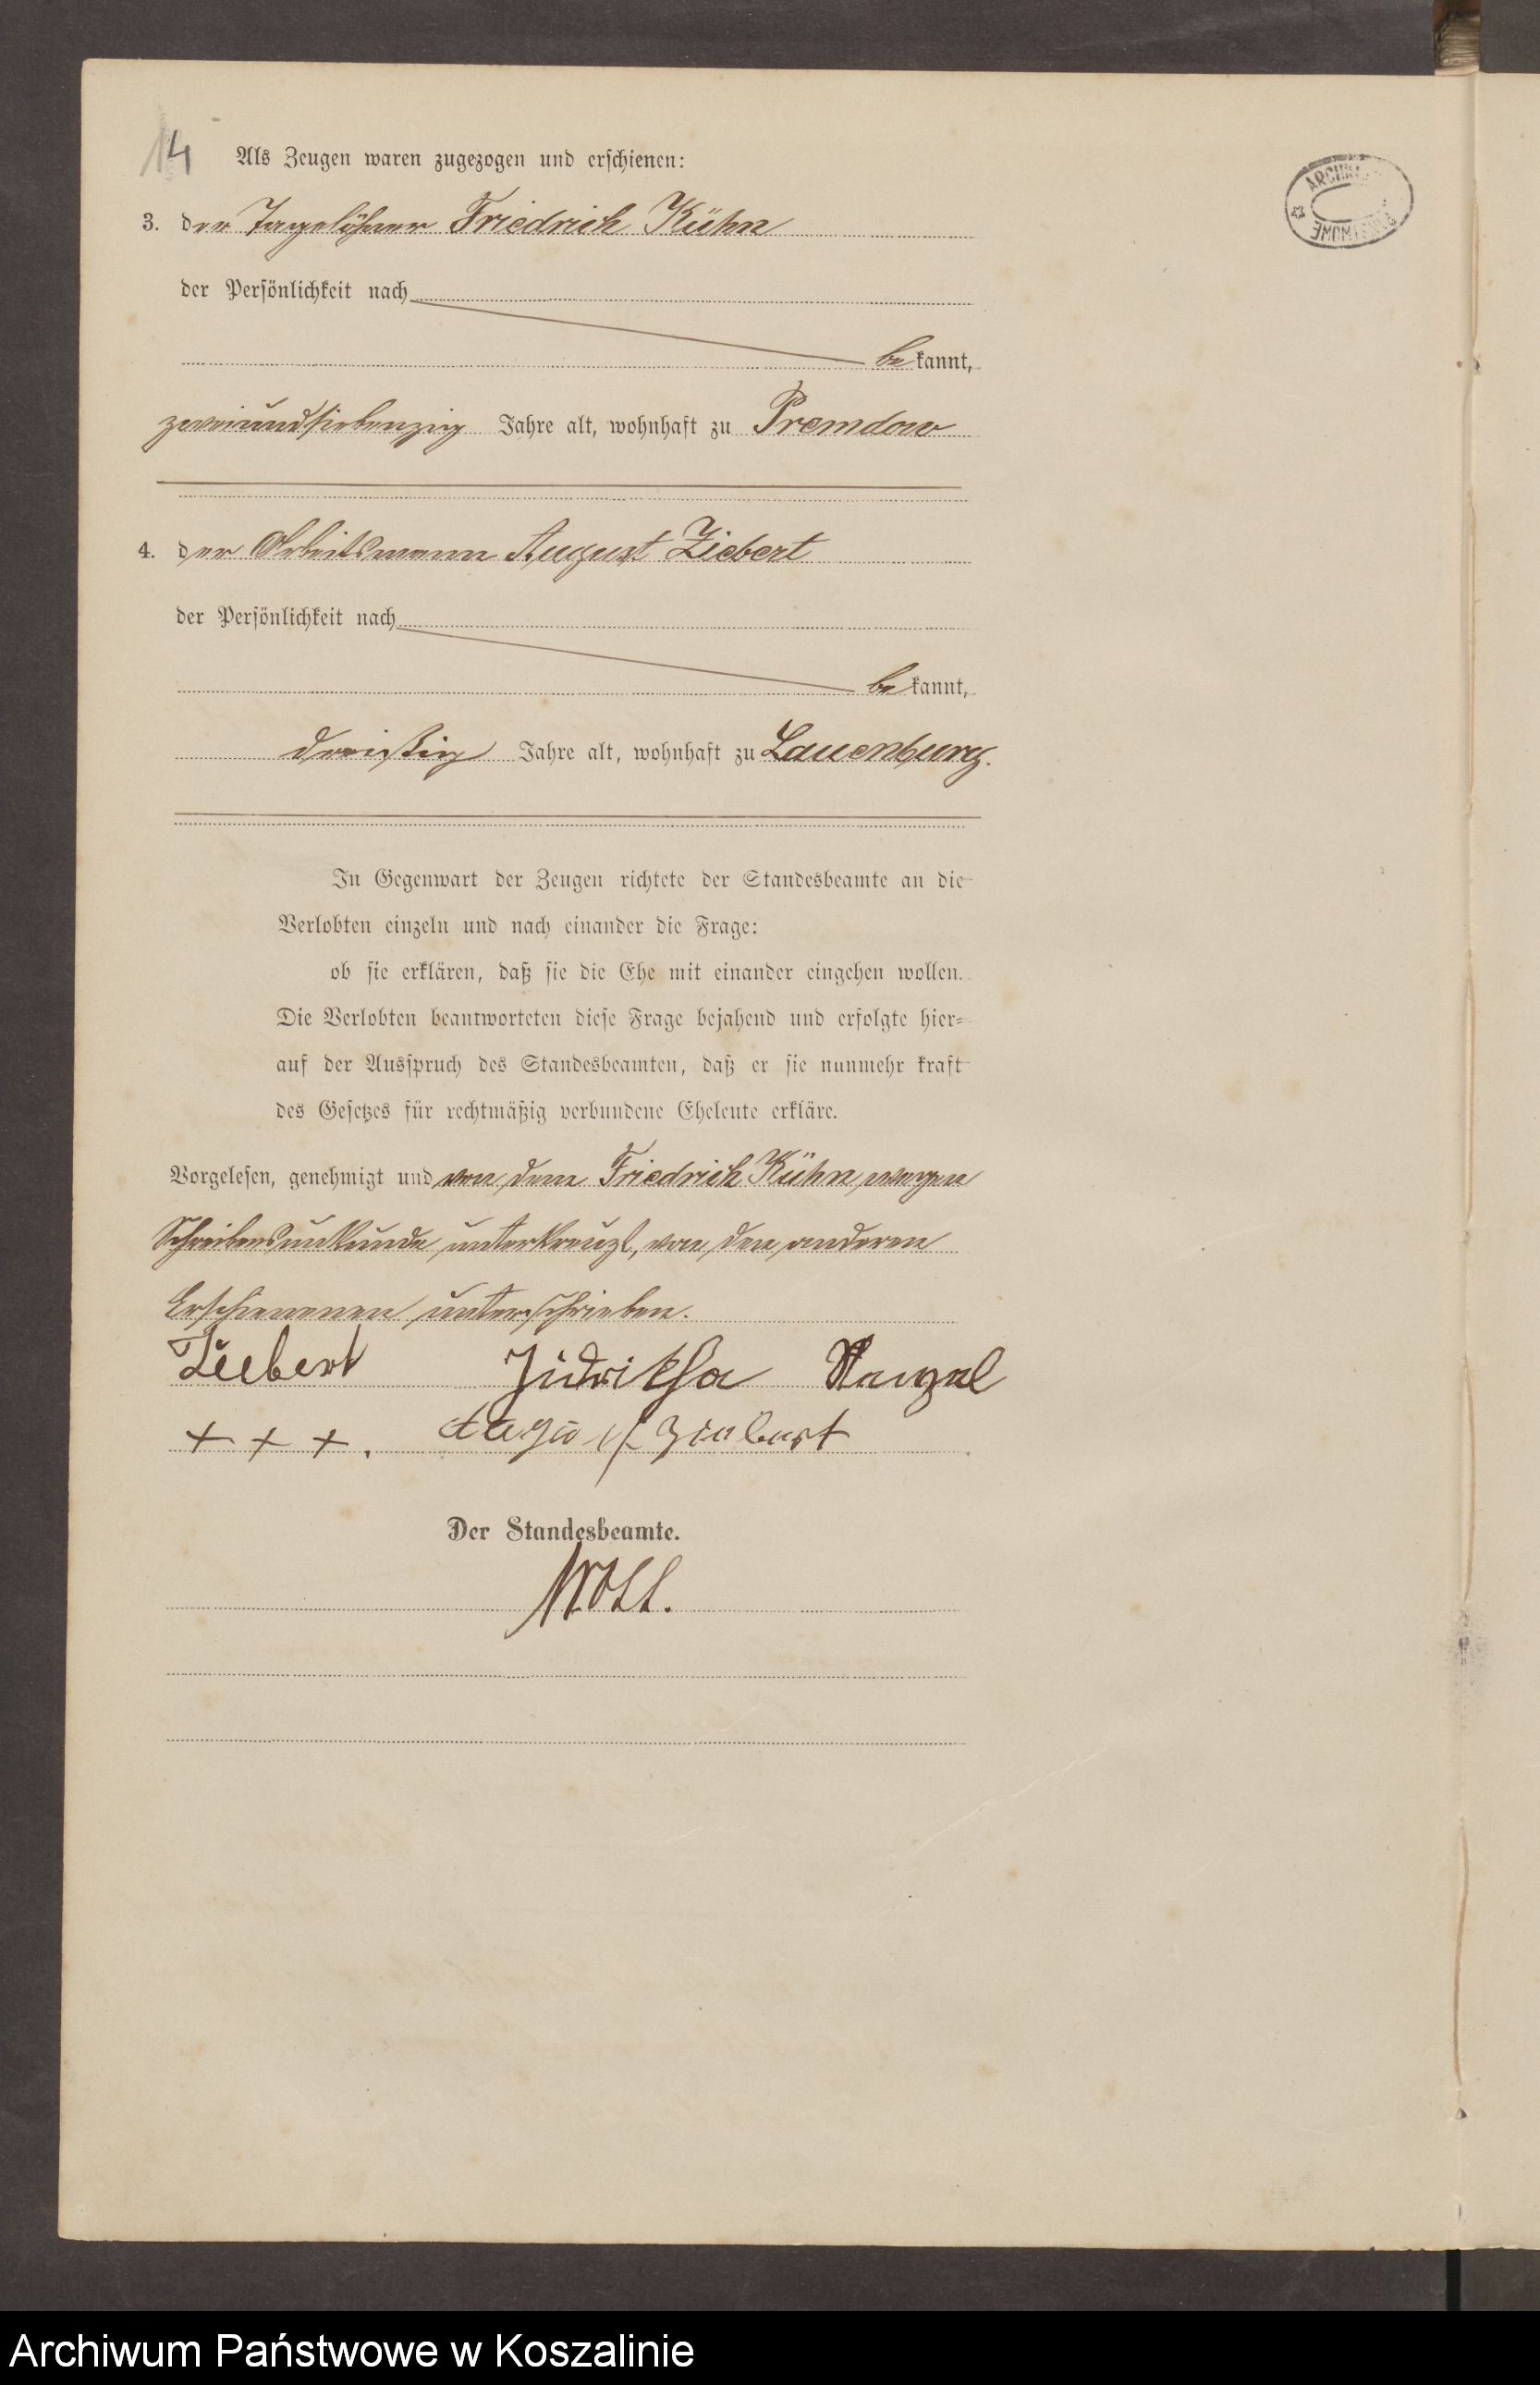 14
Als Zeugen waren zugezogen und erschienen:
3. der Tagelöhner Friedrich Kühn
der Persönlichkeit nach
bekannt,
zweiundsiebenzig Jahre alt, wohnhaft zu Premdow
4. der Arbeitsmann August Ziebert
der Persönlichkeit nach
bekannt,
dreißig Jahre alt, wohnhaft zu Lauenburg.
In Gegenwart der Zeugen richtete der Standesbeamte an die
Verlobten einzeln und nach einander die Frage:
ob sie erklären, daß sie die Ehe mit einander eingehen wollen.
Die Verlobten beantworteten diese Frage bejahend und erfolgte hier-
auf der Ausspruch des Standesbeamten, daß er sie nunmehr kraft
des Gesetzes für rechtmäßig verbundene Eheleute erkläre.
Vorgelesen, genehmigt und von dem Friedrich Kühn wegen
Schreibensunkunde unterkreuzt, von den anderen
Erschienenen unterschrieben.
+ + +. Ziebert
Der Standesbeamte.
ARCHIWUM
Archiwum Państwowe w Koszalinie